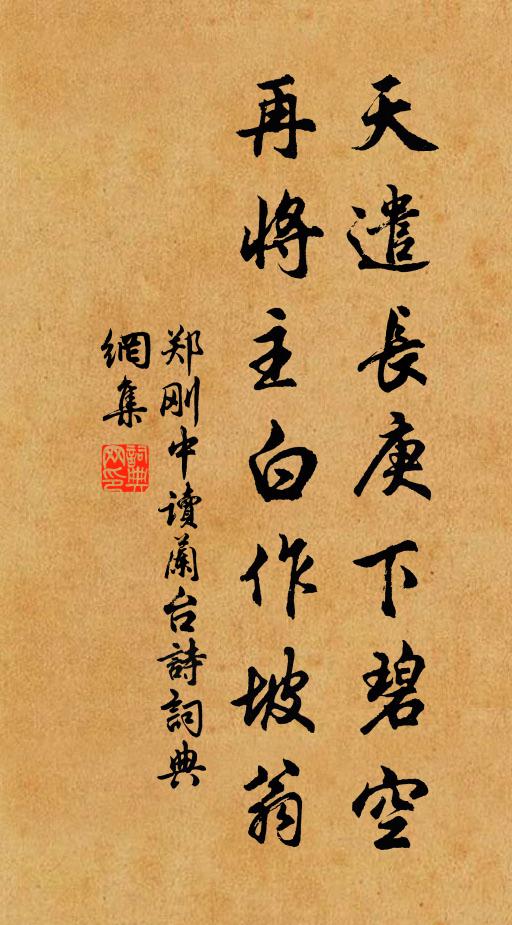 天遣長庚下碧空
再將主白作坡翁
郑刚中讀蘭台詩詞典
網集
詞典網印